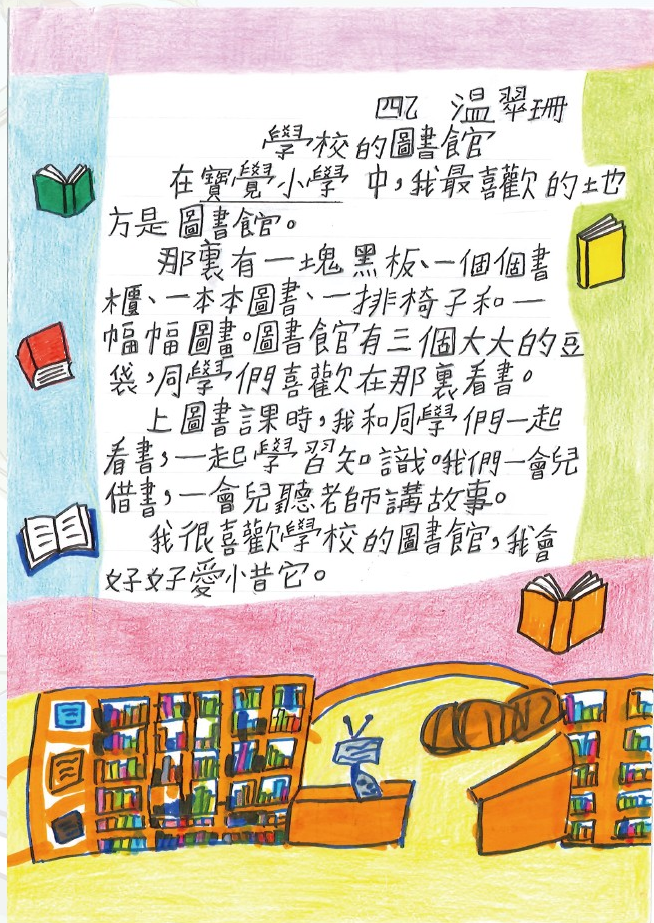 四乙 温翠珊
學校的圖書館
在寶覺小學中,我最喜歡的地
方是圖書館。
那裏有一塊黑板、一個個書
櫃、一本本圖書、一排椅子和一
幅幅圖畫。圖書館有三個大大的豆
袋,同學們喜歡在那裏看書。
上圖書課時,我和同學們一起
看書,一起學習知識。我們一會兒
借書,一會兒聽老師講故事。
我很喜歡學校的圖書館,我會
好好愛惜它。